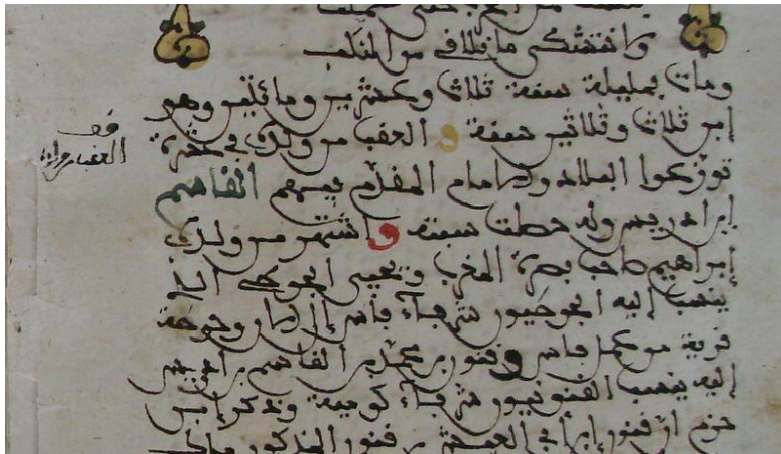 ما تلاقى من النكب
ومات سنة ثلاث وعشرين ومائتين وهو
إبن ثلاث وثلاثين سنة و العقب من ولده في عشرة
توزعوا البلاد والامام المقدم بينهم القاسم
إبن ادريس وله سبتة واشتهر من ولده
إبراهيم صاحب بصرة المغرب ويحيى الجوطي الذي
ينسب إليه الجوطيون شرفاء فاس إلى الان وجوطة
قرية من عمل فاس وقنون بن محمد بن القاسم بن ادريس
إليه ينسب القنونيون شرفاء كومية وذكر ابن
حزم ان قنون ابن ابي العيش بن قنون المذكور
قف
العقب من